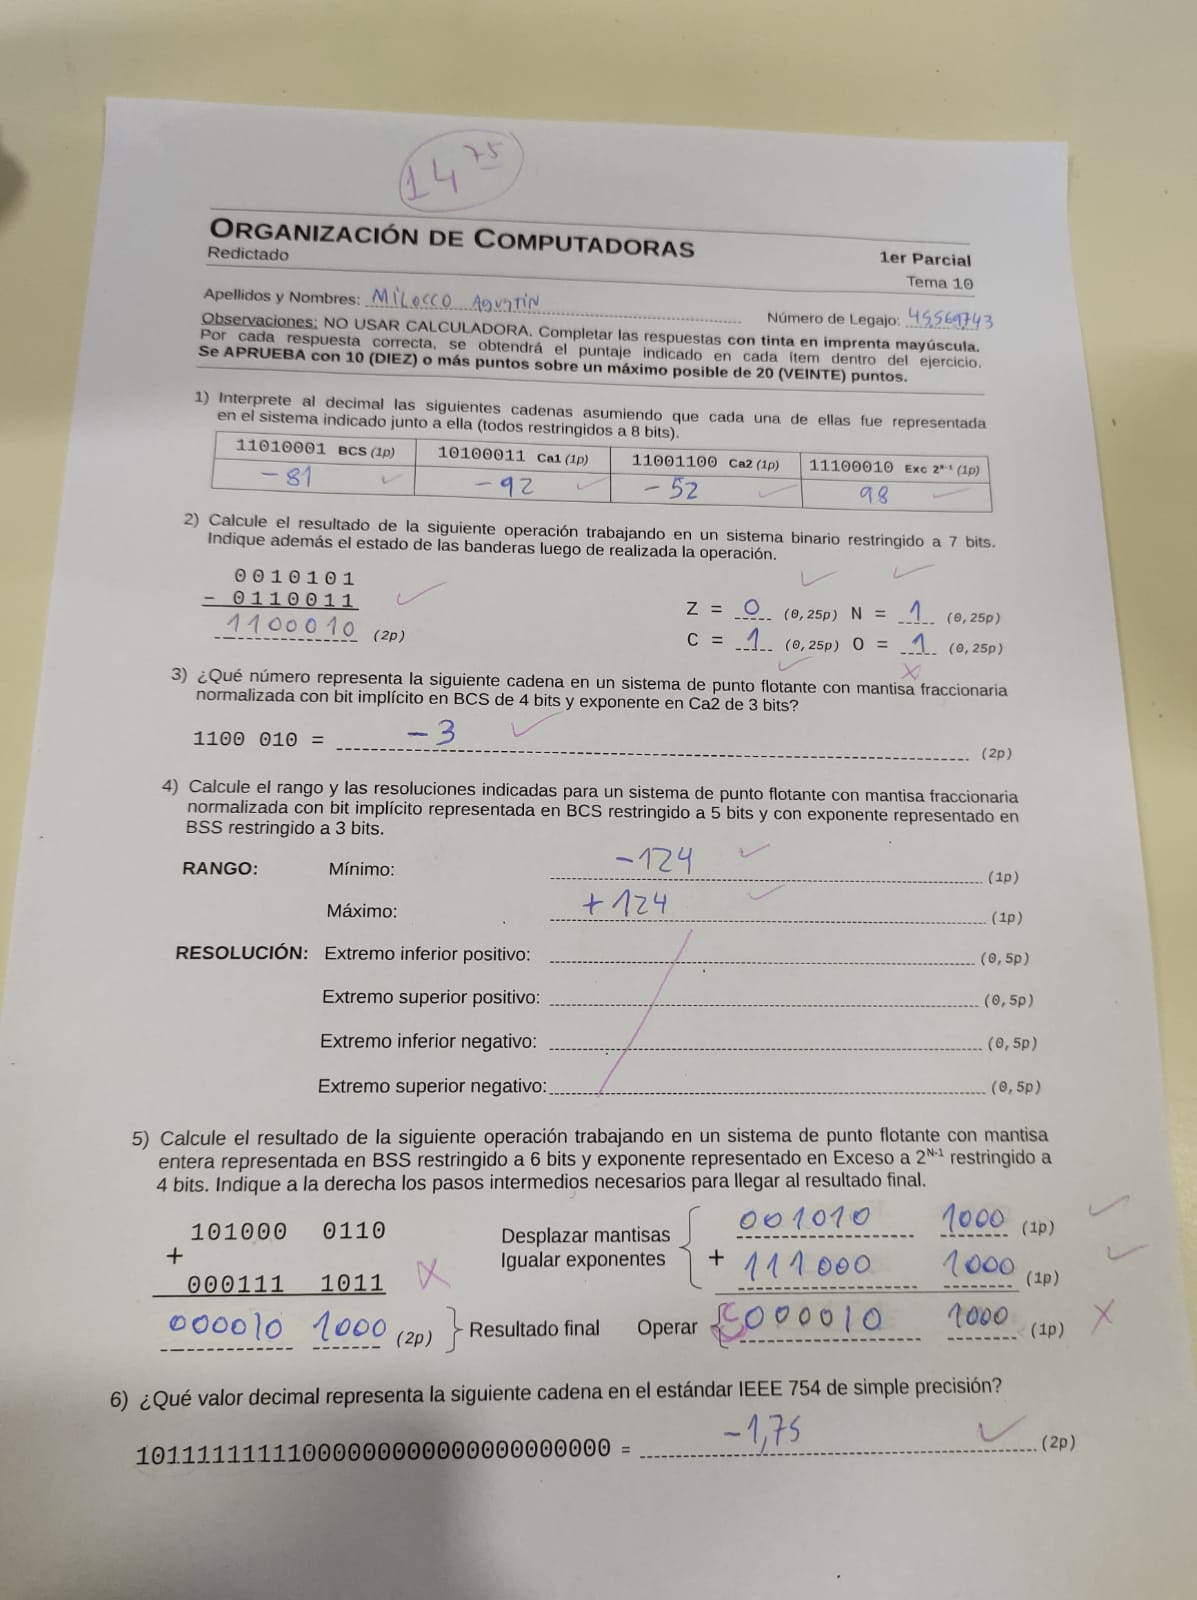 14 75
ORGANIZACIÓN DE COMPUTADORAS
Redictado
1er Parcial
Tema 10
Apellidos y Nombres: MILOCCO AGUSTÍN
Número de Legajo: 45569743
Observaciones: NO USAR CALCULADORA. Completar las respuestas con tinta en imprenta mayúscula.
Por cada respuesta correcta, se obtendrá el puntaje indicado en cada ítem dentro del ejercicio.
Se APRUEBA con 10 (DIEZ) o más puntos sobre un máximo posible de 20 (VEINTE) puntos.
1) Interprete al decimal las siguientes cadenas asumiendo que cada una de ellas fue representada
en el sistema indicado junto a ella (todos restringidos a 8 bits).
11010001 BCS (1p) 10100011 Ca1 (1p) 11001100 Ca2 (1p) 11100010 Exc 2ⁿ⁻¹ (1p)
-81 -92 -52 98
2) Calcule el resultado de la siguiente operación trabajando en un sistema binario restringido a 7 bits.
Indique además el estado de las banderas luego de realizada la operación.
0010101
- 0110011
1100010 (2p)
Z = 0 (0,25p) N = 1 (0,25p)
C = 1 (0,25p) O = 1 (0,25p)
3) ¿Qué número representa la siguiente cadena en un sistema de punto flotante con mantisa fraccionaria
normalizada con bit implícito en BCS de 4 bits y exponente en Ca2 de 3 bits?
1100 010 = -3 (2p)
4) Calcule el rango y las resoluciones indicadas para un sistema de punto flotante con mantisa fraccionaria
normalizada con bit implícito representada en BCS restringido a 5 bits y con exponente representado en
BSS restringido a 3 bits.
RANGO: Mínimo: -124 (1p)
Máximo: +124 (1p)
RESOLUCIÓN: Extremo inferior positivo: (0,5p)
Extremo superior positivo: (0,5p)
Extremo inferior negativo: (0,5p)
Extremo superior negativo: (0,5p)
5) Calcule el resultado de la siguiente operación trabajando en un sistema de punto flotante con mantisa
entera representada en BSS restringido a 6 bits y exponente representado en Exceso a 2ᴺ⁻¹ restringido a
4 bits. Indique a la derecha los pasos intermedios necesarios para llegar al resultado final.
101000 0110
+
000111 1011
000010 1000 (2p) Resultado final
Desplazar mantisas
Igualar exponentes
001010 1000 (1p)
+ 111000 1000 (1p)
Operar 000010 1000 (1p)
6) ¿Qué valor decimal representa la siguiente cadena en el estándar IEEE 754 de simple precisión?
10111111111000000000000000000000 = -1,75 (2p)